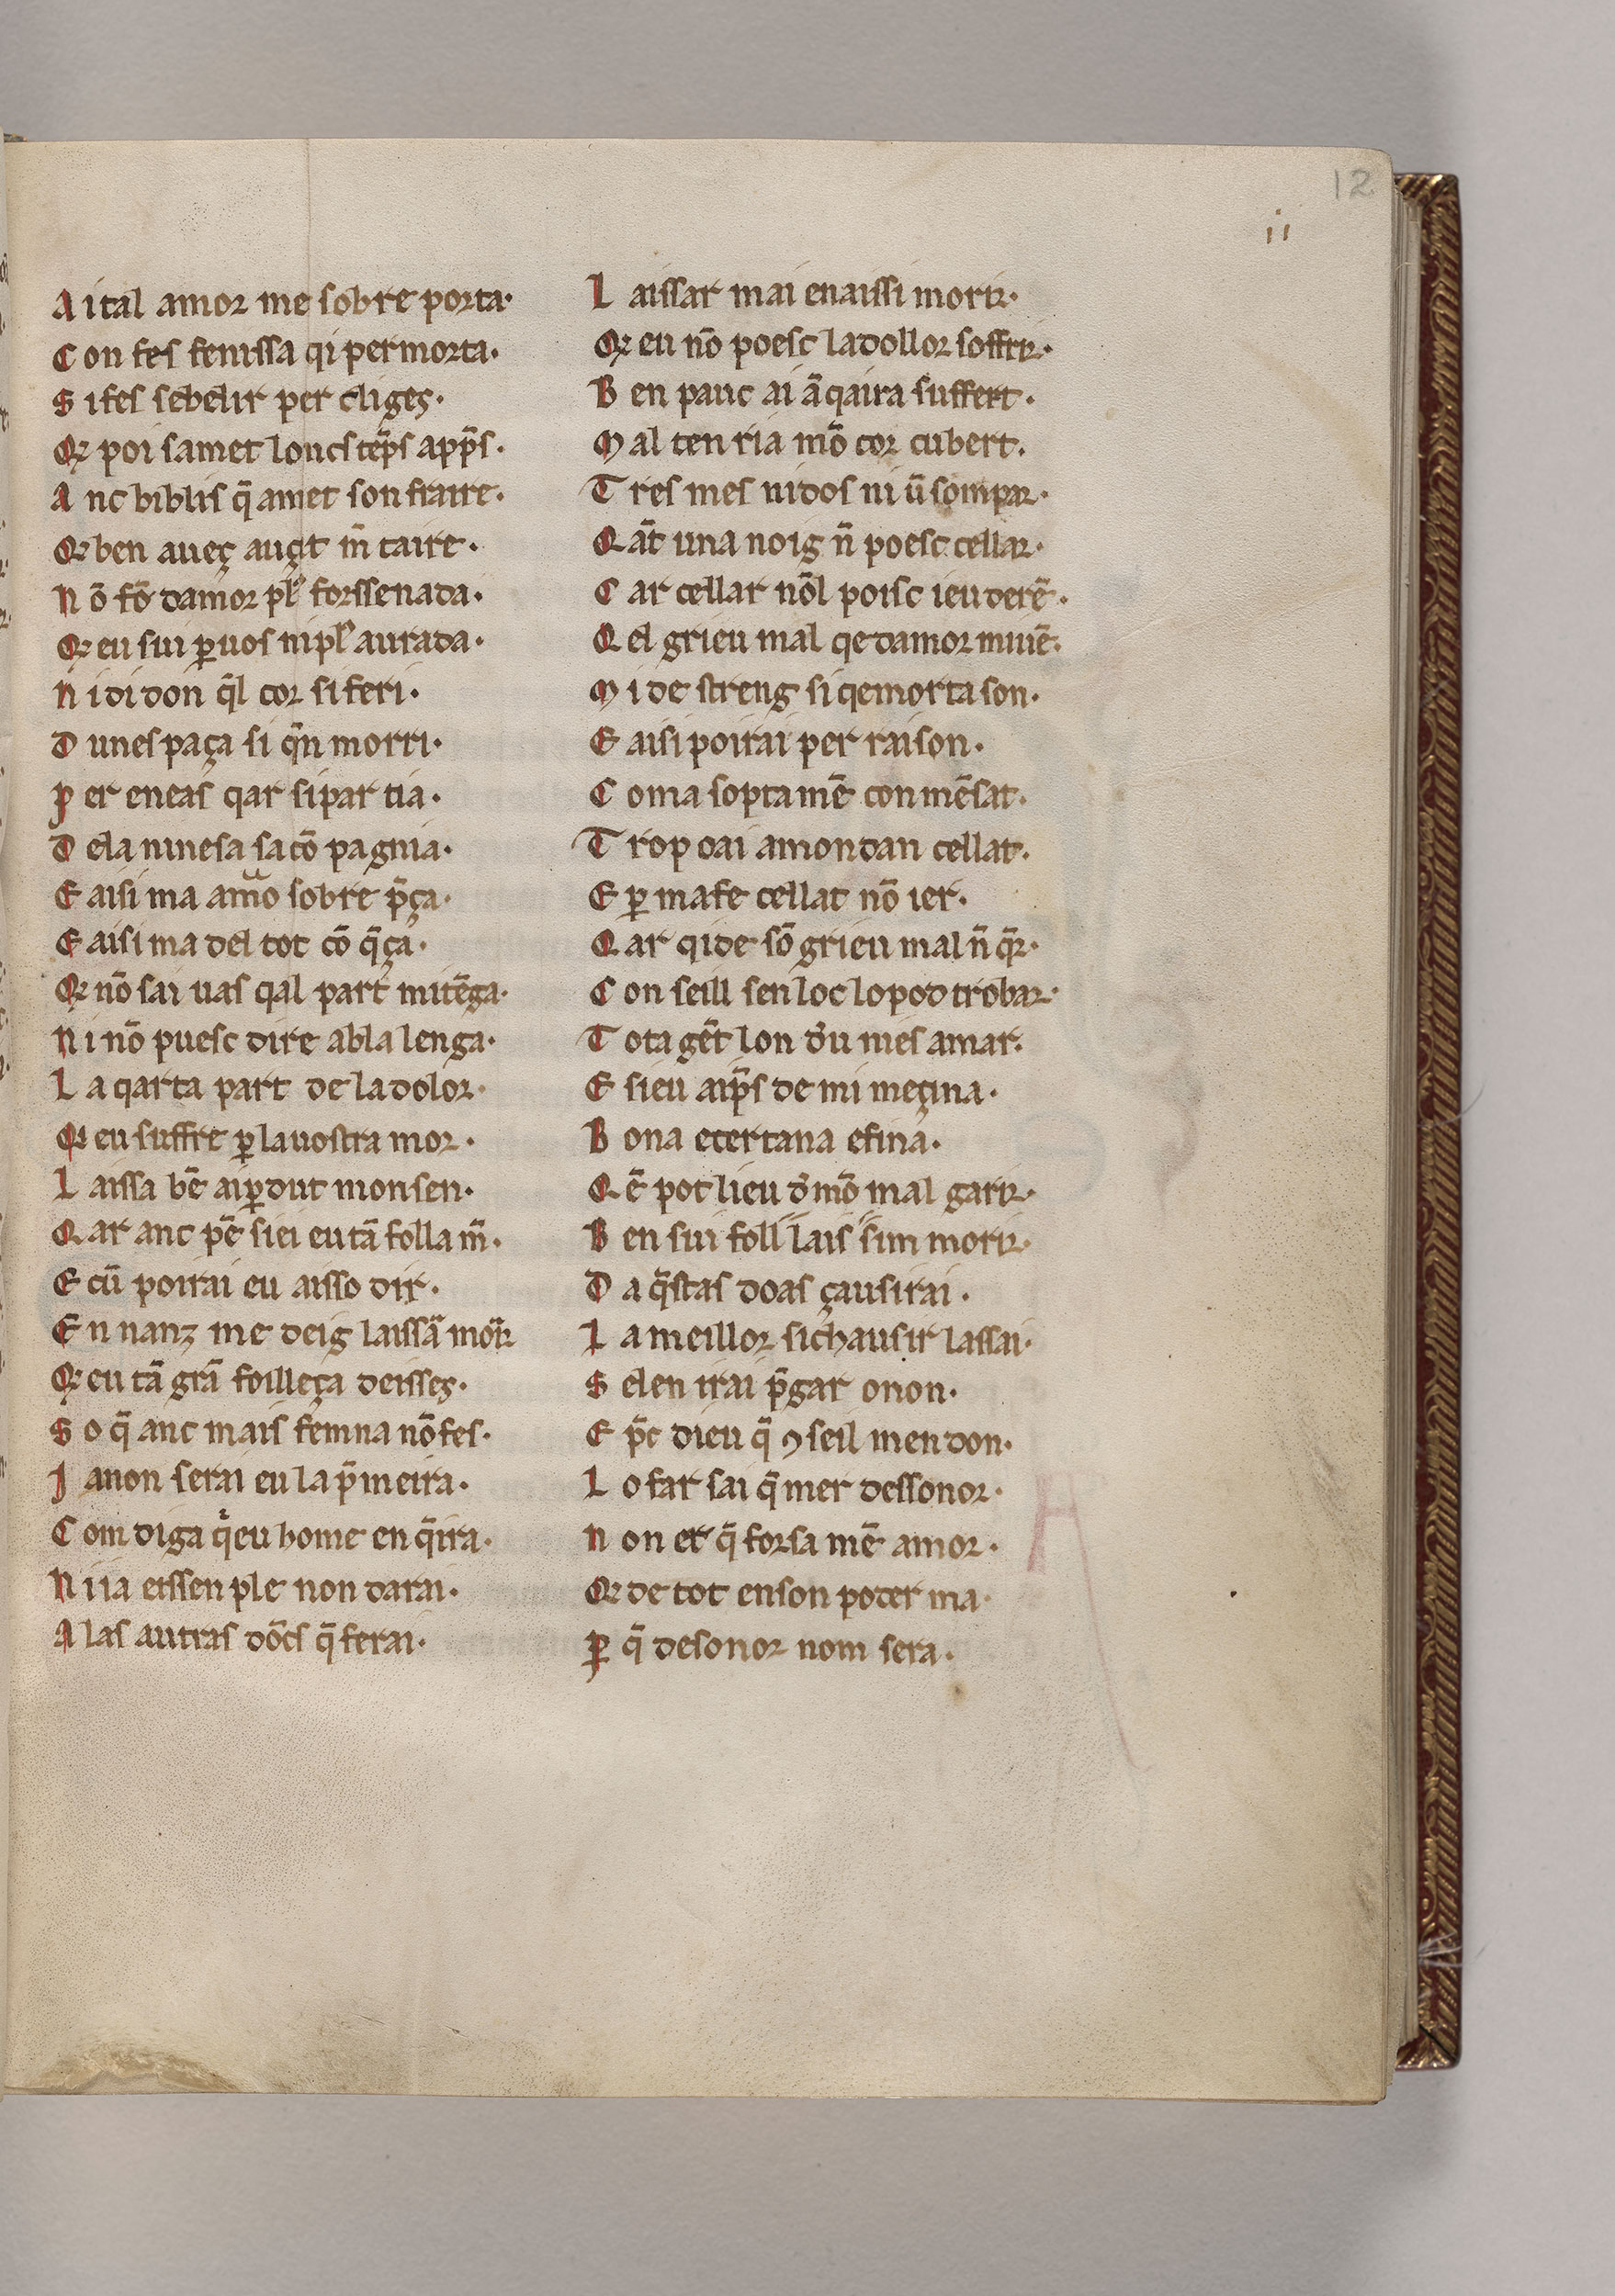 12
ii
A ital amor me sobre porta·
C on fes fenissa qi per morta·
S i fes sebelir per cliges·
Qͥ poi samet loncs tēps app̄s·
A nc biblis q̄ amet son fraire·
Qͥ ben aueç auçit m̄ taire·
N ō fō damor pl᷒ forssenada·
Qͥ eu sui ꝑ uos ni pl᷒ aurada·
N i didon q̄l cor si feri·
D un espaça si q̄n morri·
P er eneas qar si partia·
D ela ni nesa sa cōpagnia·
E aisi ma amo sobre p̄ça·
E aisi ma del tot cō q̄ça·
Qͥ nō sai uas qal part mi tēga·
N i nō puesc dire ab la lenga·
L a qarta part de la dolor·
Qͥ eu suffre ꝑ la uostra mor·
L aissa bē ai ꝑdut mon sen·
Q ar anc pē siei eu tā folla m̄·
E cū poirai eu aisso dir·
E n nanz me deig laissā morͥr
Qͥ eu tā grā foilleça deisses·
S o q̄ anc mais femna nō fes·
J anon serai eu la p̄meira·
C om diga q̄ eu home en q̄ira·
N i ia eissenple non darai·
A las autras dōcs q̄ ferai·
L aissar mai enaissi morir·
Qͥ eu nō poesc la dollor soffrir·
B en pauc ai ā qaira suffert·
M al tenria mō cor cubert·
T res mes ni dos ni ū sompar·
Q āt una noig n̄ poesc cellar·
C ar cellar nōl poisc ieu derē·
Q el grieu mal qe damor miuē·
M i destreng si qe morta son·
E aisi poirai per raison·
C oma soptamē conmēsat·
T rop oai amondan cellat·
E ꝑ ma fe cellat nō ier·
Q ar qi de sō grieu mal n̄ q̄r·
C onseill sen loc lo pod trobar·
T ota gēt lon d̓u mes amar·
E sieu aip̄s de mi meçina·
B ona e certana e fina·
Q ē pot lieu d̓ mō mal garir·
B en sui foll lais sim morir·
D a q̄stas doas çausirai·
L a meillor si chausir la ssai·
S elen irai p̄gar o non·
E p̄c dieu q̄ ꝯseil men don·
L o far sai q̄ mer dessonor·
N on er q̄ forsa mē amor·
Qͥ de tot en son poder ma·
ꝑ q̄ desonor nom sera·